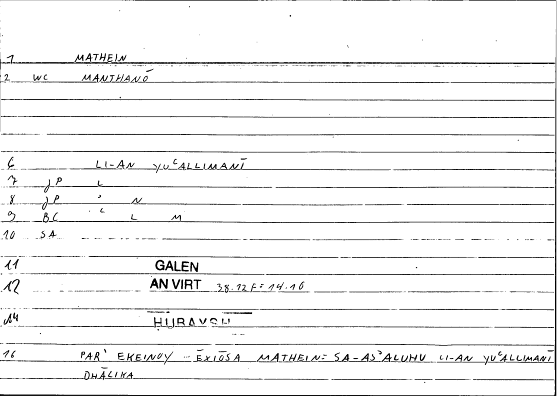 1 MATHEIN
2 WC MANTHANŌ
6 LI-AN YUᶜALLIMANĪ
7 JP L
8 JP ʾ N
9 BC ᶜ L M
10 SA
11 GALEN
12 AN VIRT 38.12 F = 14.16
14 HUBAYSH
16 PARʾ EKEINOY ĒXIŌSA MATHEIN = SA-ASʾALUHU LI-AN YUᶜALLIMANĪ
DHĀLIKA